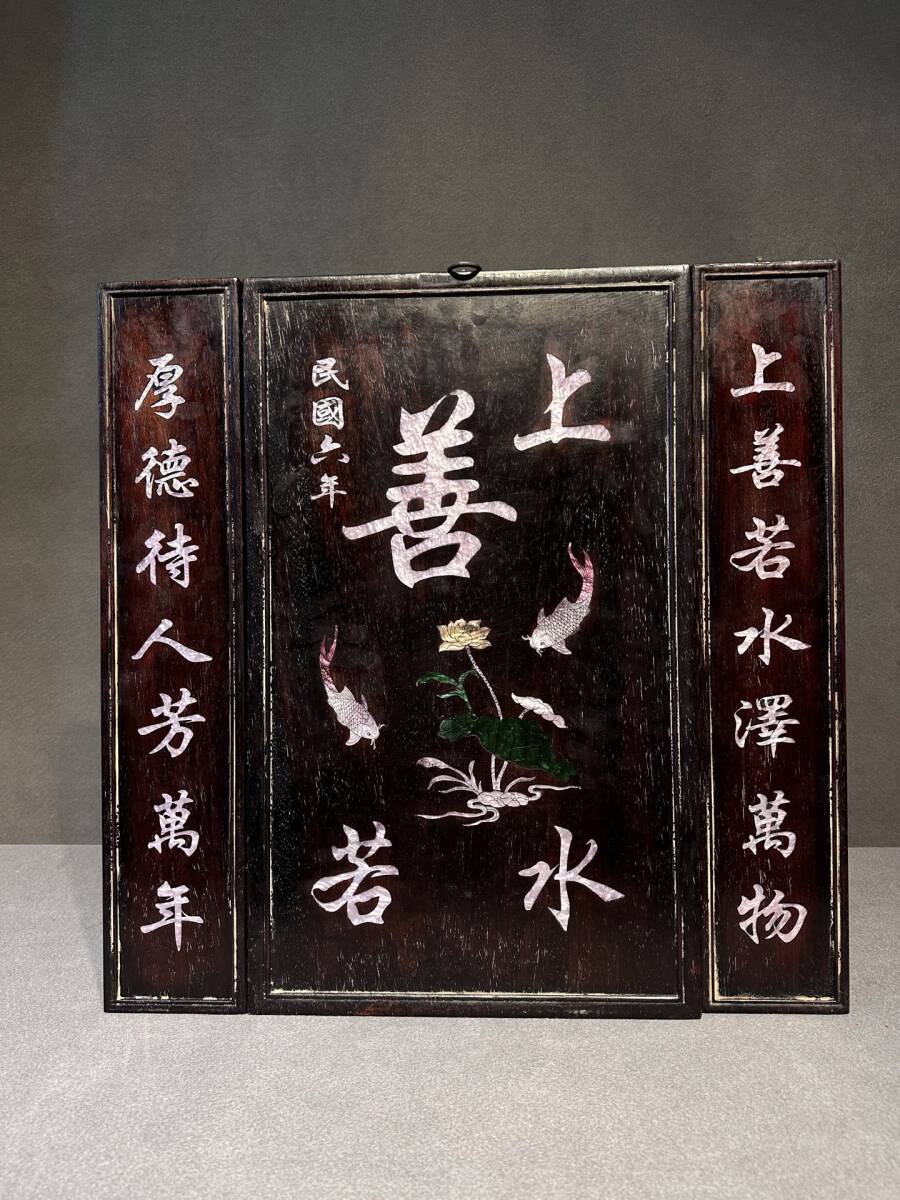 上善若水澤萬物
上善若水
民國六年
厚德待人芳萬年